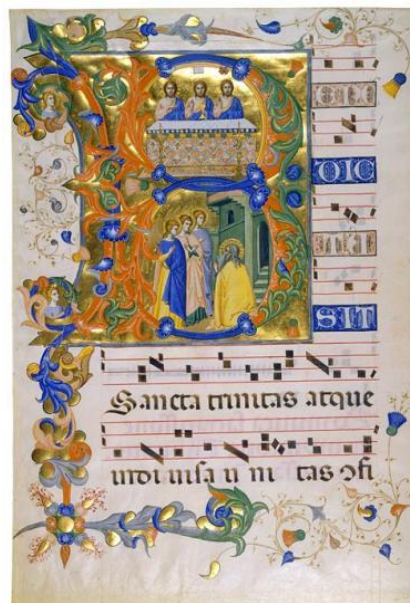 B
DIC
SIT
Sancta trinitas atque
indiuisa u ni tas ɔfi